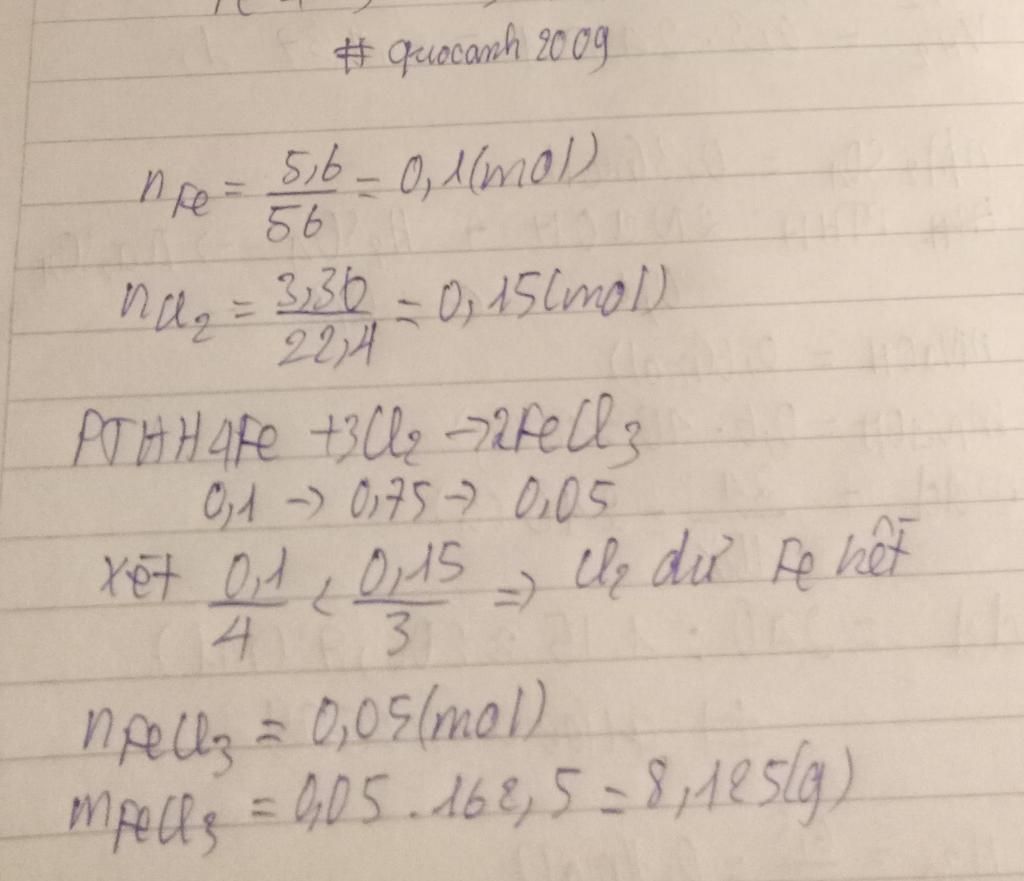 # quocanh 2009
nFe = 5,6/56 = 0,1(mol)
nCl2 = 3,36/22,4 = 0,15(mol)
PTHH 4Fe +3Cl2 →2FeCl3
0,1 → 0,75 → 0,05
xét 0,1/4 < 0,15/3 => Cl2 dư Fe hết
nFeCl3 = 0,05(mol)
mFeCl3 = 0,05 . 162,5 = 8,125(g)